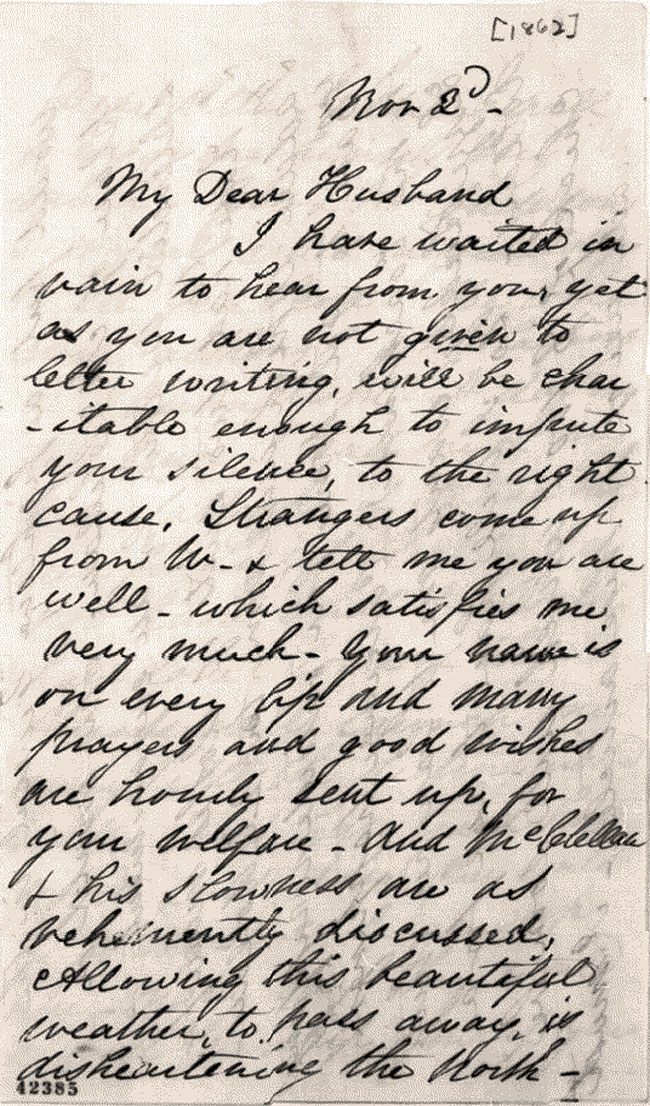 [1862]
Nov 2d -
My Dear Husband
I have waited in
vain to hear from you, yet
as you are not given to
letter writing, will be char
-itable enough to impute
your silence, to the right
cause. Strangers come up
from W- & tell me you are
well - which satisfies me
very much - Your name is
on every lip and many
prayers and good wishes
are hourly sent up, for
your welfare - And McClellan
& his slowness are as
vehemently discussed.
Allowing this beautiful
weather, to pass away, is
disheartening the North -
42385